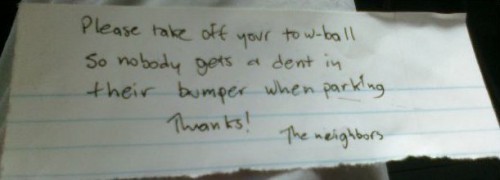 Please take off your tow-ball
so nobody gets a dent in
their bumper when parking
Thanks!
The neighbors